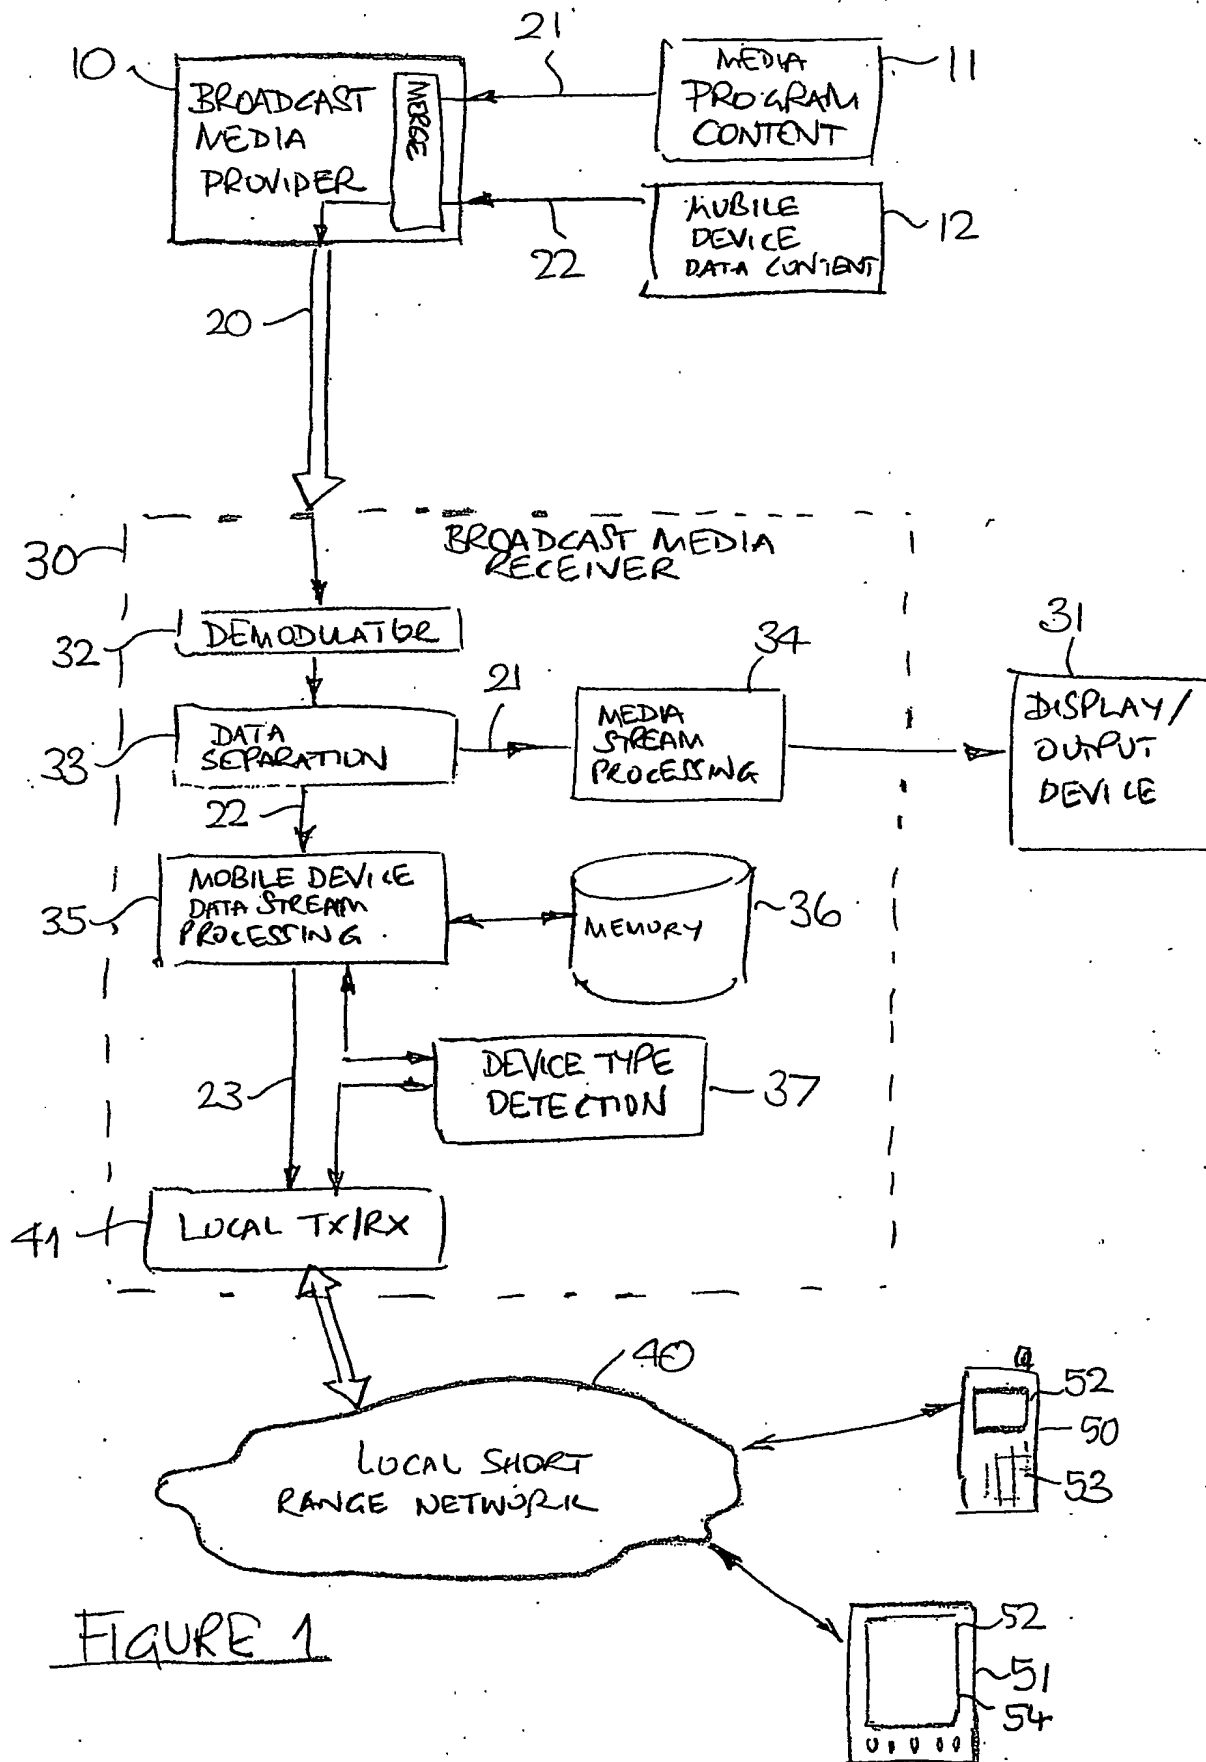 21
10
BROADCAST
MEDIA
PROVIDER
MERGE
MEDIA
PROGRAM
CONTENT
11
MOBILE
DEVICE
DATA CONTENT
12
22
20
30
BROADCAST MEDIA
RECEIVER
32
DEMODULATOR
33
DATA
SEPARATION
21
34
MEDIA
STREAM
PROCESSING
31
DISPLAY/
OUTPUT
DEVICE
22
35
MOBILE DEVICE
DATA STREAM
PROCESSING
MEMORY
36
23
DEVICE TYPE
DETECTION
37
41
LOCAL TX/RX
40
LOCAL SHORT
RANGE NETWORK
52
50
53
52
51
54
FIGURE 1